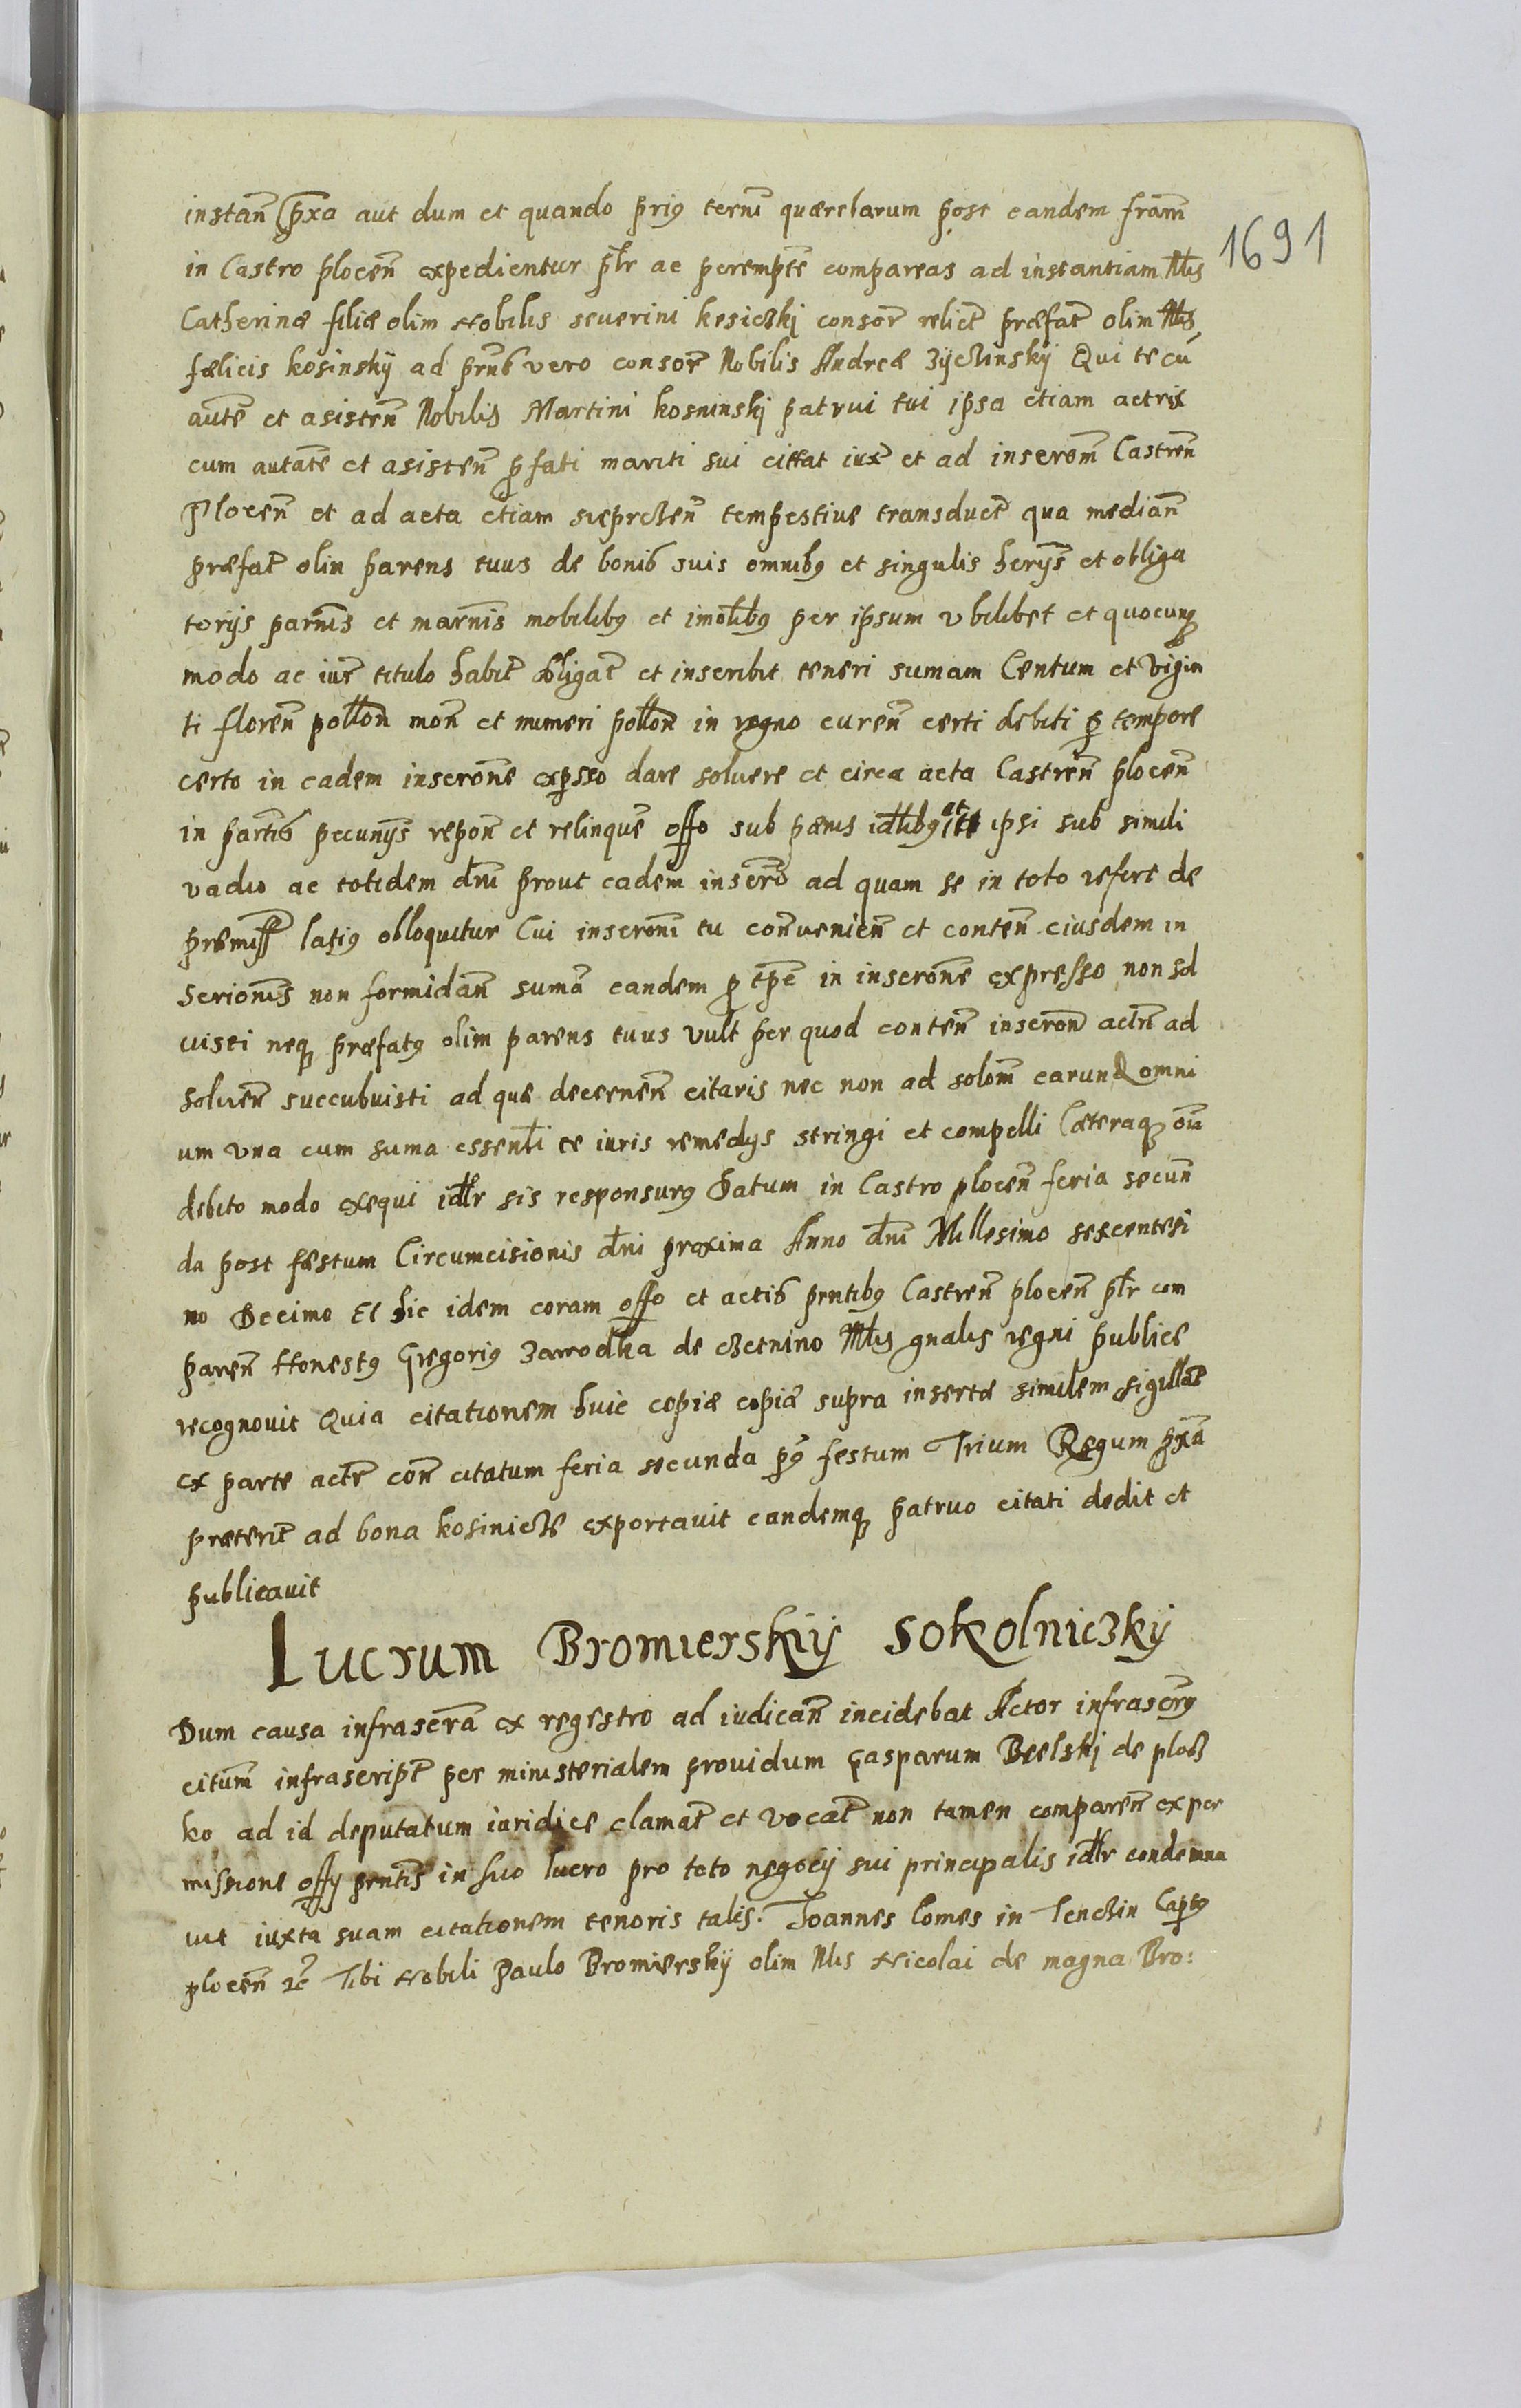 instan̄ p̄xa aut dum et quando prius term̄ quærelarum post eandem fram̄
1691
in Castro plocen̄ expedientur pl̄r ac perempte compareas ad instantiam Nlis
Catherinæ filiæ olim Nobilis seuerini kesiczkj consor̄ relict̄ præfat̄ olim Nlis
fælicis kosinskÿ ad prn̄s vero consor̄ Nobilis Andreæ Zÿchinskÿ Qui te cū
autē et asisten̄ Nobilis Martini kosninskj patrui tui ipsa etiam actrix
cum autatē et asisten̄ p̄fati mariti sui cittat iux̄ et ad inserom̄ Castren̄
Plocen̄ et ad acta etiam sieprchen̄ tempestiue transduct̄ qua median̄
præfat̄ olin parens tuus de bonis suis omnibus et singulis herÿs et obliga
torijs parnis et marnis mobilibus et imolibus per ipsum vbilibet et quocunq
modo ac iur̄ titulo habit̄ obligat̄ et inscribit teneri sumam Centum et vigin
ti floren̄ pollon̄ mon̄ et numeri pollon̄ in regno curen̄ certi debiti p tempore
certo in eadem inscrone expsso dare soluere et circa acta Castren̄ plocen̄
in partis pecunÿs repon̄ et relinque offo sub pænis idlibus at ipsi sub simili
vadio ac totidem dn̄i prout eadem inscro ad quam se in toto refert de
præmiss latius obloquitur Cui inscroni tu conuenien̄ et conten̄ eiusdem in
scrionis non formidan̄ sumā eandem p tpe in inscrone expresso non sol
uisti neq præfatus olim parens tuus vult per quod conten̄ inscron̄ actri ad
soluen̄ succubuisti ad quæ decernen̄ citaris nec non ad solom̄ earund omni
um vna cum suma essenli te iuris remedys stringi et compelli Cæteraq oīa
debito modo exequi idlr sis responsurus Datum in Castro plocen̄ feria secun
da post fæstum Circumcisionis dn̄i proxima Anno dn̄i Millesimo sexcentesi
mo Decimo Et hic idem coram offo et actis prntibus Castren̄ plocen̄ pl̄r com
paren̄ Honestus Gregorius Zawodka de chetnino Mlis gnalis regni publice
recognouit Quia citationem huic copiæ copiæ supra insertæ similem sigillat̄
ex parte actr̄ con̄ citatum feria secunda p9 festum Trium Regum p̄xā
præterit̄ ad bona kosinicze exportauit eandemq patruo citati dedit et
publicauit
Lucrum Bromierskÿ Sokolniczkÿ
Dum causa infrascrā ex regestro ad iudican̄ incidebat Actor infrascrus
citum̄ infrascript̄ per ministerialem prouidum Casparum Beelskj de plocz
ko ad id deputatum iuridice clamat̄ et vocat̄ non tamen comparen̄ ex per
missione offy prntis in suo lucro pro toto negocÿ sui principalis idlr condemna
uit iuxta suam citationem tenoris talis. Joannes Comes in Tenchin Captus
plocen̄ etc Tibi Nobili Paulo Bromierskÿ olim Nlis Nicolai de magna Bro: